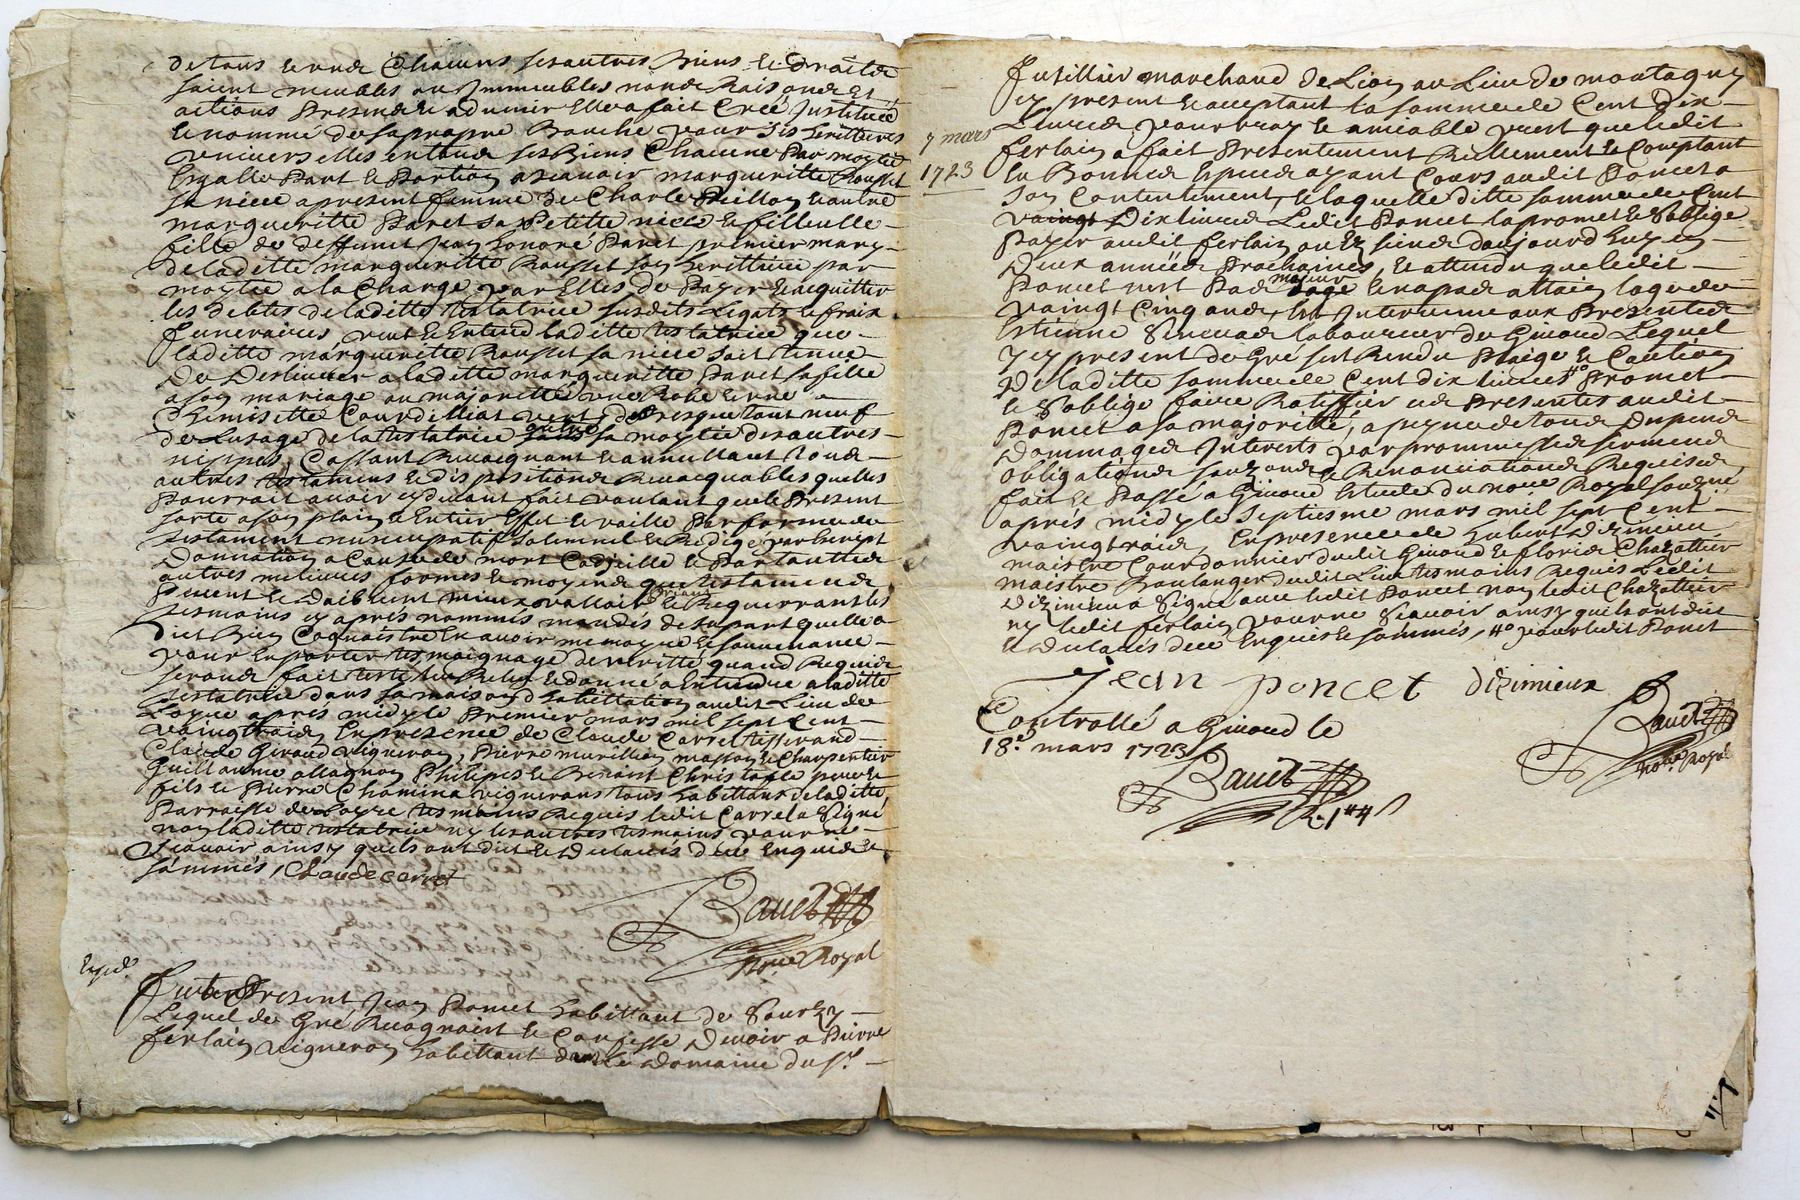 de tous et uns Chacuns ses autres Biens et Droits
soient meubles ou Immeubles noms Raisons et
actions presents et advenir elle a fait Creé Institué
et nommé de sa propre Bouche pour ses heritieres
universelles en tous ses Biens Chacune par moytié
Esgalle part et portion a scavoir margueritte Rousset
sa niece a present femme de Charle et autre
margueritte Paret sa Petitte niece et filleulle
fille de deffunct Jean honoré Paret premier mary
de laditte margueritte Rousset son herittiere par
moytié a la Charge par Elles de Payer et acquitter
les debtes de laditte testatrice susdits Legats et fraix
funeraires, veut et Entend laditte testatrice que
laditte margueritte Rousset sa niece soit tenue
De Deslivrer a laditte margueritte Paret sa fille
a son mariage ou majorité une Robe et une
Chemisette Courdelliat vert de presque tout neuf
de Lusage de la testatrice outre sa moytié des autres
nippes, Cassant Revocquant et annullant tous
autres testamens et dispositions Revocquables quelles
Pourroit avoir cy devant fait voulant que le Present
sorte a son plain et Entier Effet et vaille Par forme de
testament nuncupatif solemnel et Redigé par Escript
Donnation a Cause de mort Codicille et Par touttes
autres melieures formes et moyens que testamens
Peuvent et doibvent mieux valloir Priant et Requerrant les
tesmoins cy aprés nommés mandés de sa part quelle a
dict Bien Cognoistre En avoir memoyre et souvenance
pour En porter tesmoignage de veritté quand Requis
seronds fait et donné a Entendre a laditte
testatrice dans sa maison d'habittation audit Lieu de
Loyre aprés midy le Premier mars mil sept Cent
vaingtrois En presence de Claude Carret tisserand
Claude Giraud vigneron, Pierre murillion masson et Charpentier
Guillaume allagnon Philipes et Benoist Christophle pere et
fils et Pierre Chamina vignerons tous habittans de laditte
Parroisse de Loyre tesmoins Requis ledit Carret a Signé
non laditte testatrice ny les autres tesmoins pour ne
Scavoir ainsy quils ont dict et Declarés dece Enquis et
sommés, Claude carret
Baud
no.re Royal
Exped.
Fut Present Jean Poncet habittant de Sourzy
Lequel de Gré Recognoist et Confesse Devoir a Pierre
ferlain vigneron habittant dans le domaine du Sr.
7 mars
1723
Fusillier marchand de Lion au Lieu de montagny
cy present et acceptant la somme de Cent dix
Livres pour pray et amiable prest que ledit
ferlain a fait Presentement Reellement et Comptant
En Bonnes Espece ayant Cours audit Poncet a
son Contentement, et laquelle ditte somme de Cent
vaingt Dix livres Ledit Poncet la promet et Soblige
Payer audit ferlain ou Es siens daujourdhuy en
Deux années Prochaines, Et attendu que ledit
Poncet nest Pas majeur dage et na pas attain lage de
vaingt Cinq ans, Est Intervenu aux Presentes
Estienne laboureur de Givord Lequel
y cy present de Gré sest Rendu Plaige et Caution
De laditte somme de Cent dix livres Promet
et soblige faire Ratiffier ces Presentes audit
Poncet a sa majorité, a peyne de tous Depens
Dommages Interests par prommesses sermens
obligations soumissions et Renonciations Requises
fait et Passé a Givord Estude du no.re Royal soubzné
aprés midy le Septiesme mars mil sept Cent
vaingtrois, En presence de hubert Dizimieux
maistre Courdonnier dudit Givord et floris Chazottier
maistre Boulanger dudit Lieu tesmoins Requis Ledit
Dizimieux a Signé avec ledit Poncet non ledit Chazottier
ny ledit ferlain pour ne Scavoir ainsy quils ont dict
et declarés dece Enquis et sommés, pour ledit Poncet
Jean poncet dizimieux
Baud
no.re Royal
Controllé a Givord le
18.e mars 1723
Baud